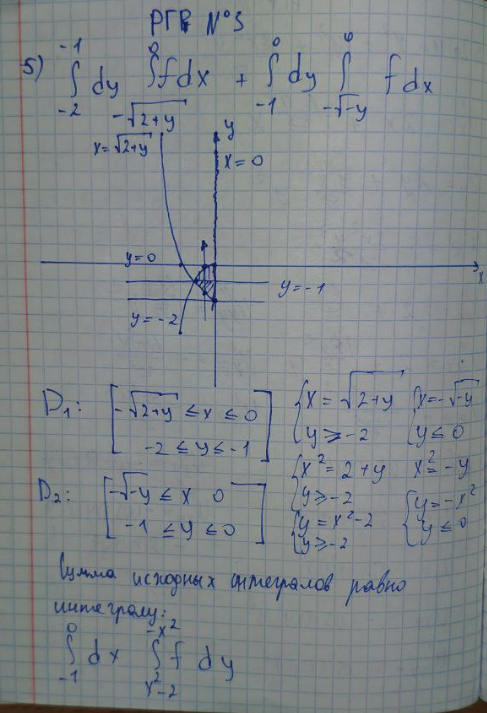 РГР №3
5) ∫_{-2}^{-1} dy ∫_{-√(2+y)}^{0} f dx + ∫_{-1}^{0} dy ∫_{-√-y}^{0} f dx
x=√(2+y)
y
x=0
y=0
x
y=-1
y=-2
D₁: [-√(2+y) ≤ x ≤ 0
-2 ≤ y ≤ -1]
{x = √(2+y)
y ≥ -2
{x=-√-y
y ≤ 0
{x² = 2+y
y ≥ -2
x² = -y
D₂: [-√-y ≤ x 0
-1 ≤ y ≤ 0]
{y = x²-2
y ≥ -2
{y = -x²
y ≤ 0
Сумма исходных интегралов равно
интегралу:
∫_{-1}^{0} dx ∫_{x²-2}^{-x²} f dy